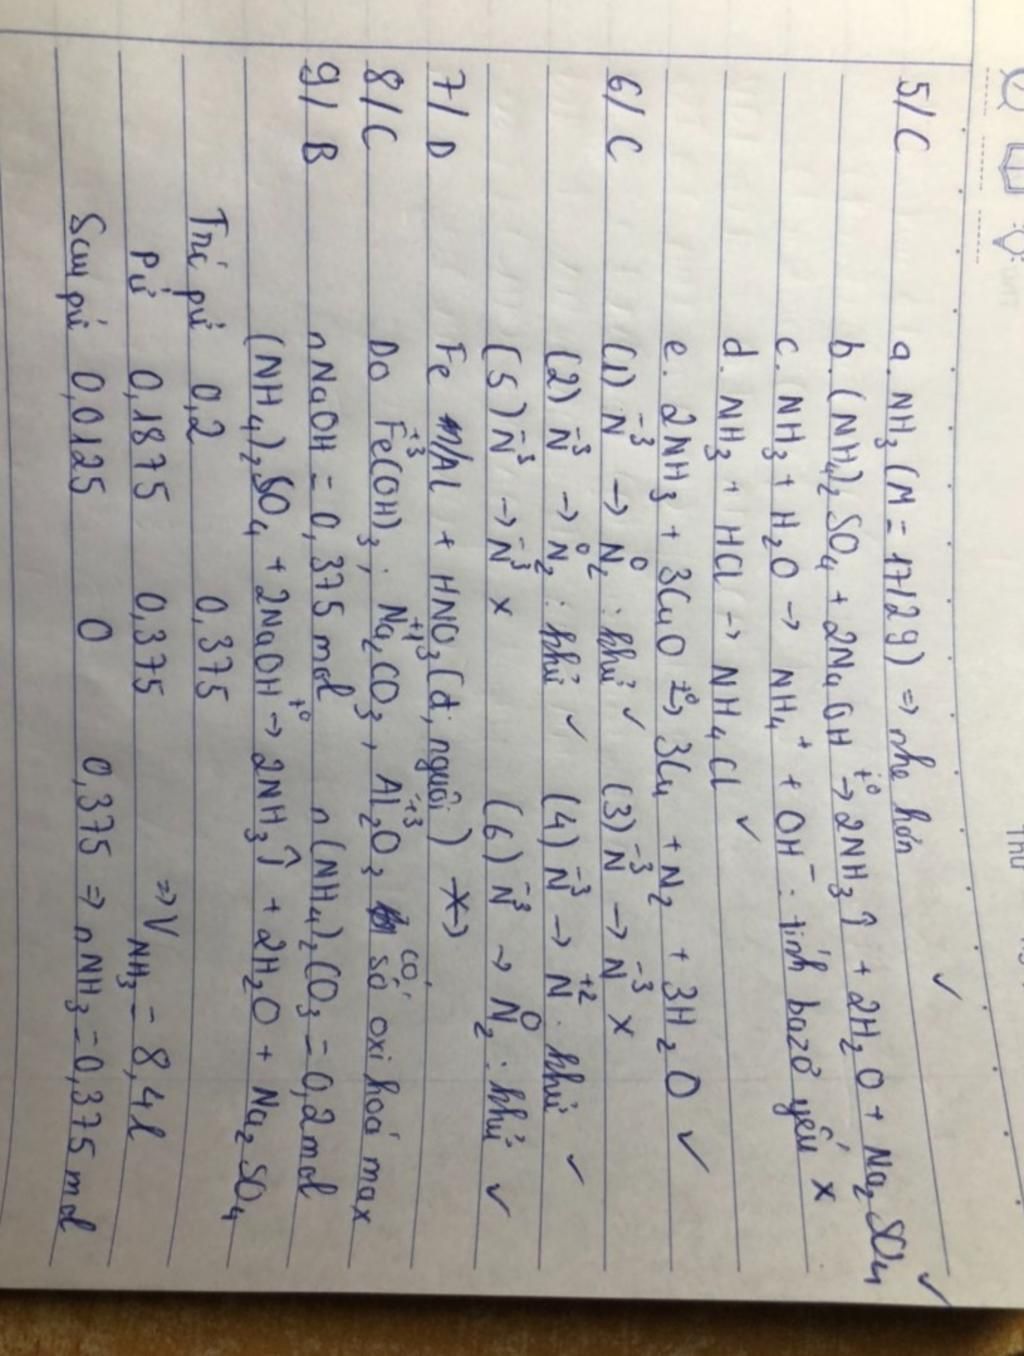 5/ C a. NH3 (M = 17 < 29) => nhẹ hơn ✓
b. (NH4)2SO4 + 2NaOH -t°-> 2NH3↑ + 2H2O + Na2SO4 ✓
c. NH3 + H2O → NH4+ + OH- : tính bazơ yếu x
d. NH3 + HCl → NH4Cl ✓
e. 2NH3 + 3CuO -t°-> 3Cu + N2 + 3H2O ✓
6/ C (1) N-3 → N2 0 : khử ✓ (3) N-3 → N-3 x
(2) N-3 → N2 0 : khử ✓ (4) N-3 → N+2 : khử ✓
(5) N-3 → N-3 x (6) N-3 → N2 0 : khử ✓
7/ D Fe /Al + HNO3 (đ, nguội) -x->
8/ C Do Fe+3(OH)3 ; Na+12CO3, Al+32O3 có số oxi hoá max
9/ B nNaOH = 0,375 mol n(NH4)2CO3 = 0,2 mol
(NH4)2SO4 + 2NaOH -t°-> 2NH3↑ + 2H2O + Na2SO4
Trc pứ 0,2 0,375
Pứ 0,1875 0,375 => V NH3 = 8,4 l
Sau pứ 0,0125 0 0,375 => nNH3 = 0,375 mol